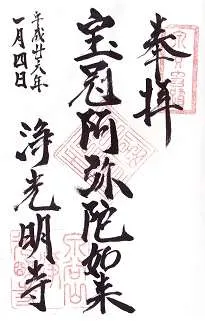 奉拝
宝冠阿弥陀如来
浄光明寺
平成廿六年
一月四日